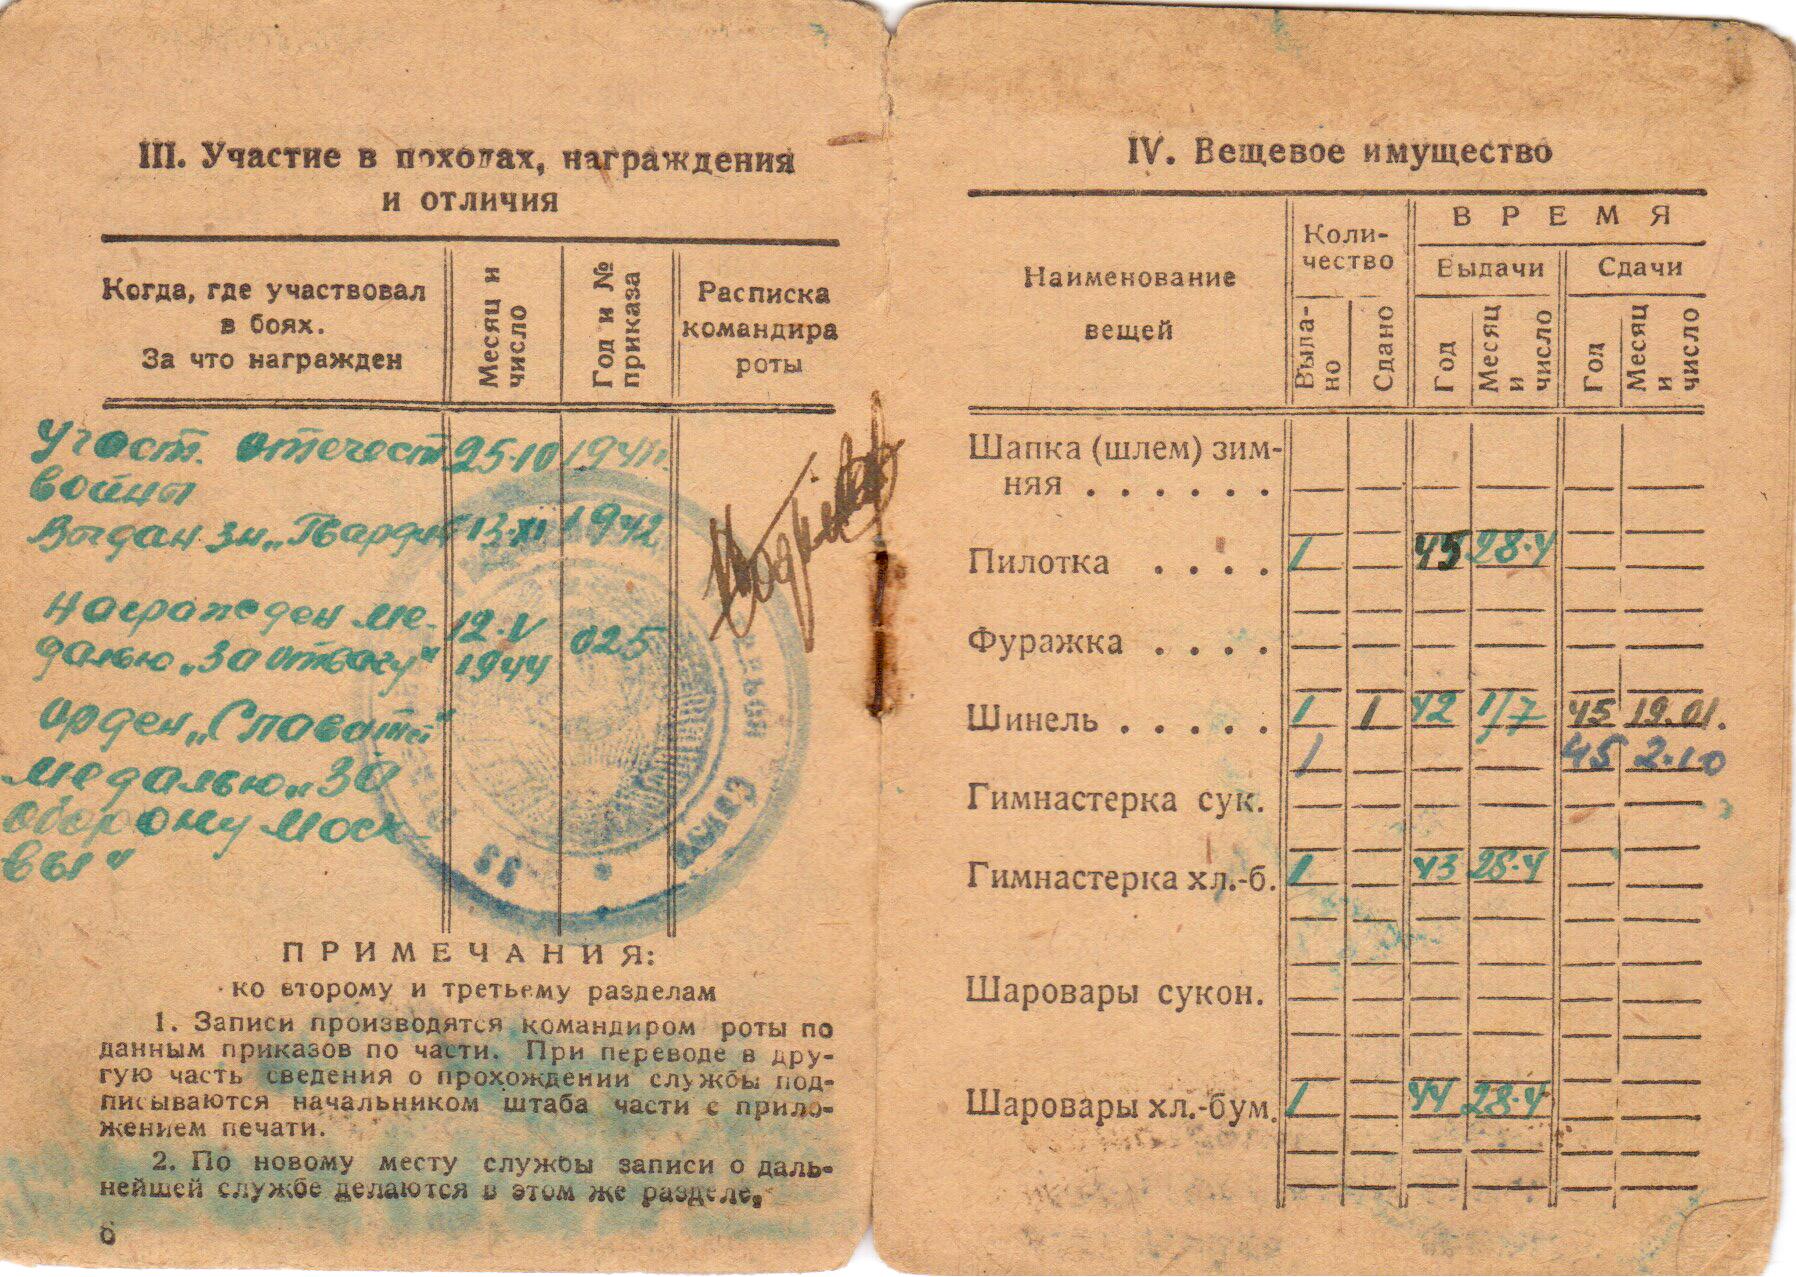 III. Участие в походах, награждения
и отличия
Когда, где участвовал
в боях.
За что награжден
Месяц и
число
Год и №
приказа
Расписка
командира
роты
Участ. отечест. 25.10 1941г.
войны
Выдан зн „Гвардия" 13.XI 1942
Награжден ме- 12.V 025
далью „За отвагу" 1944
орден „Слава
медалью „За
оборону Моск-
вы"
ПРИМЕЧАНИЯ:
ко второму и третьему разделам
1. Записи производятся командиром роты по
данным приказов по части. При переводе в дру-
гую часть сведения о прохождении службы под-
писываются начальником штаба части с прило-
жением печати.
2. По новому месту службы записи о даль-
нейшей службе делаются в этом же разделе.
6
IV. Вещевое имущество
Наименование
вещей
Коли-
чество
Выда-
но
Сдано
ВРЕМЯ
Выдачи
Сдачи
Год
Месяц
и
число
Год
Месяц
и
число
Шапка (шлем) зим-
няя . . . . . .
Пилотка . . . . 1 45 28.4
Фуражка . . . .
Шинель . . . . . 1 1 42 1/7 45 19.01.
1 45 2.10
Гимнастерка сук.
Гимнастерка хл.-б. 1 43 28.4
Шаровары сукон.
Шаровары хл.-бум. 1 44 28.4